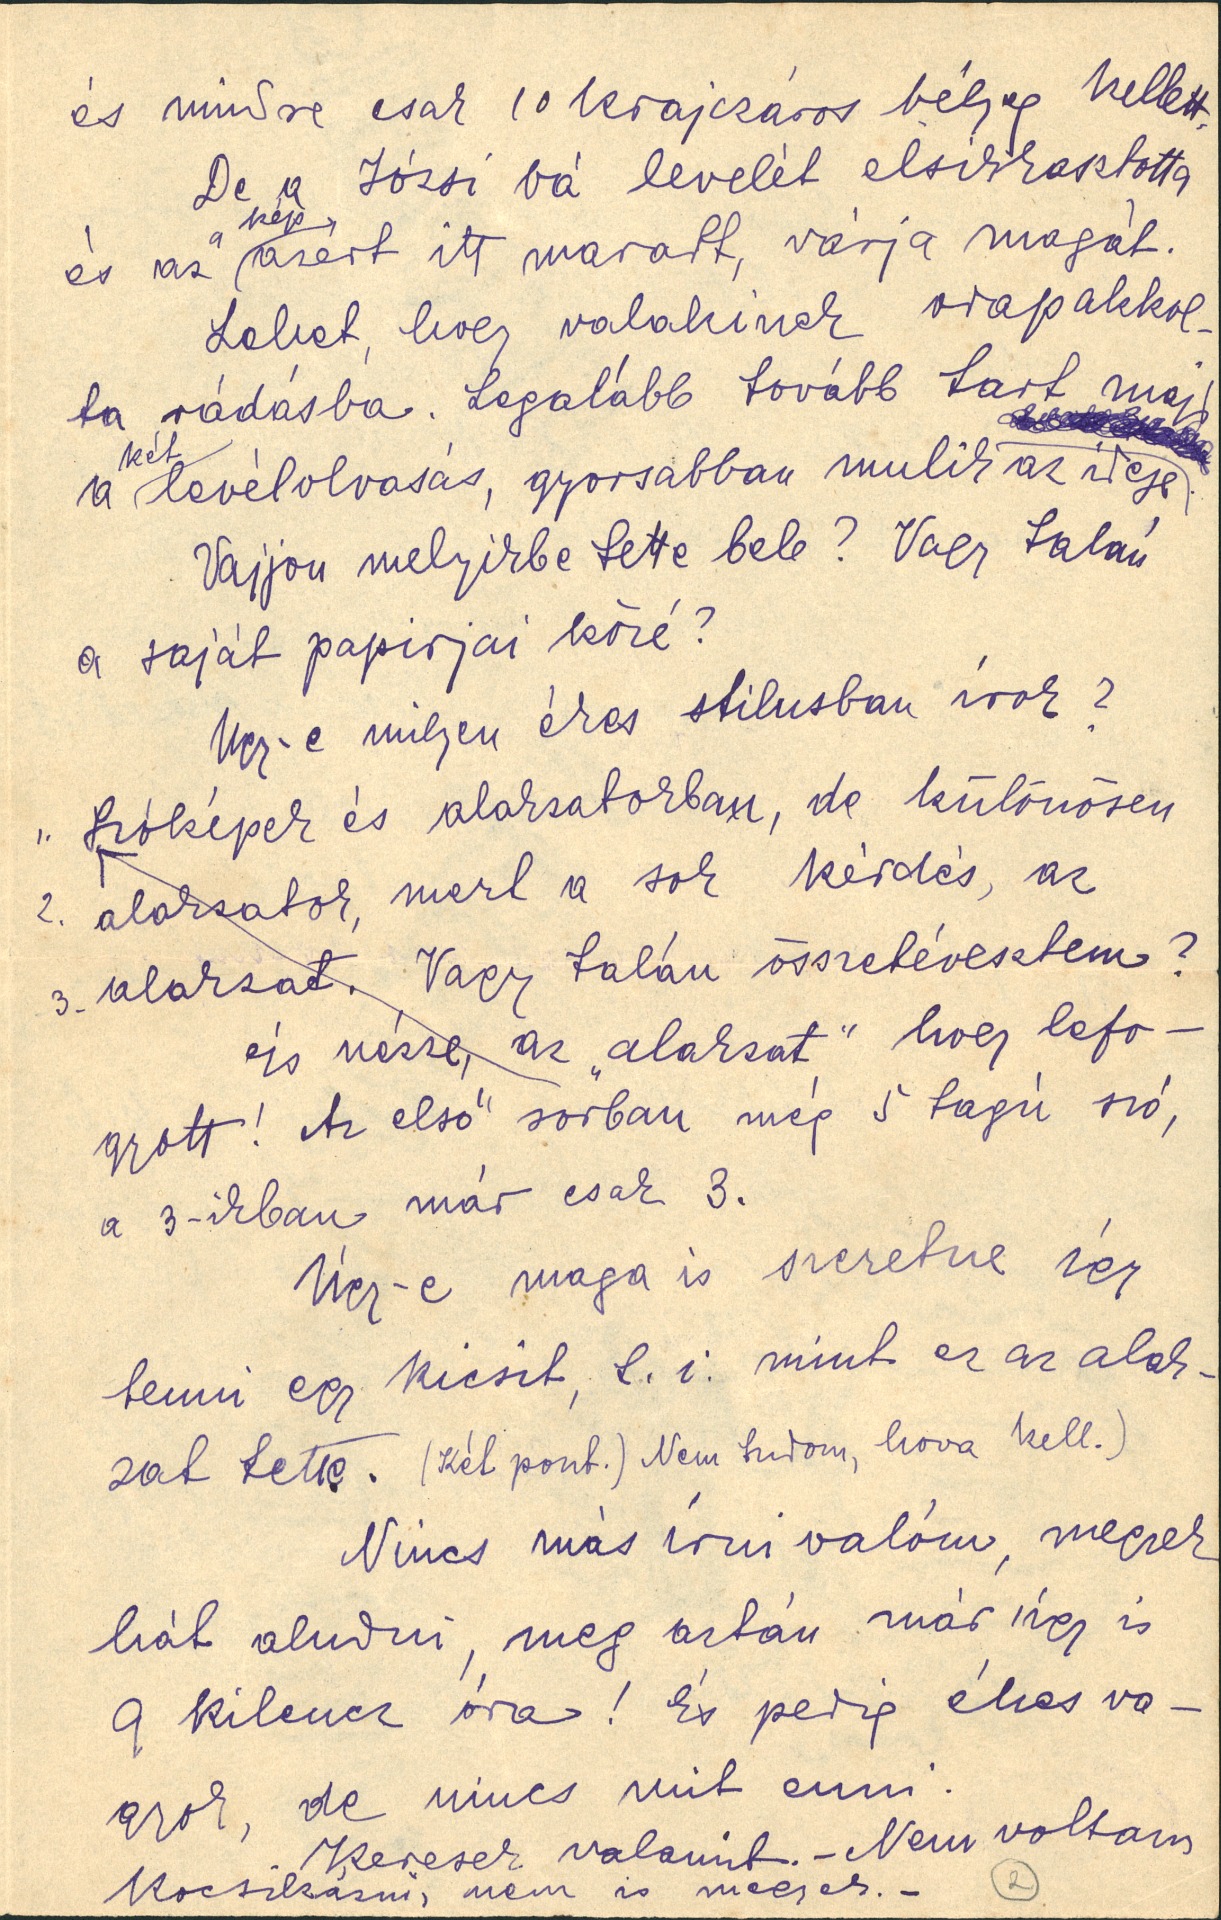 és mindre csak 10 krajczáros bélyeg kellett.
De a Józsi bá levelét elsikkasztotta
és az "a kép" azért itt maradt, várja magát.
Lehet, hogy valakinek
ta rádásba. Legalább tovább tart majd
a két levélolvasás, gyorsabban mulik az ideje.
Vajjon melyikbe tette bele? Vagy talán
a saját papirjai közé?
Ugy-e milyen édes stilusban írok?
1. Szóképek és alakzatokban, de különösen
2. alakzatok, mert a sok kérdés, az
3. alakzat. Vagy talán összetévesztem?
És nézze, az „alakzat" hogy lefo-
gyott! Az első sorban még 5 tagú szó,
a 3-ikban már csak 3.
Úgy-e maga is szeretne így
tenni egy kicsit, t. i. mint ez az alak-
zat tette. (Két pont.) Nem tudom, hova kell.)
Nincs más írni valóm, megyek
hát aludni, meg aztán már úgy is
9 kilencz óra! És pedig éhes va-
gyok, de nincs mit enni.
Keresek valamit. - Nem voltam
Kocsikázni, nem is megyek. -
2